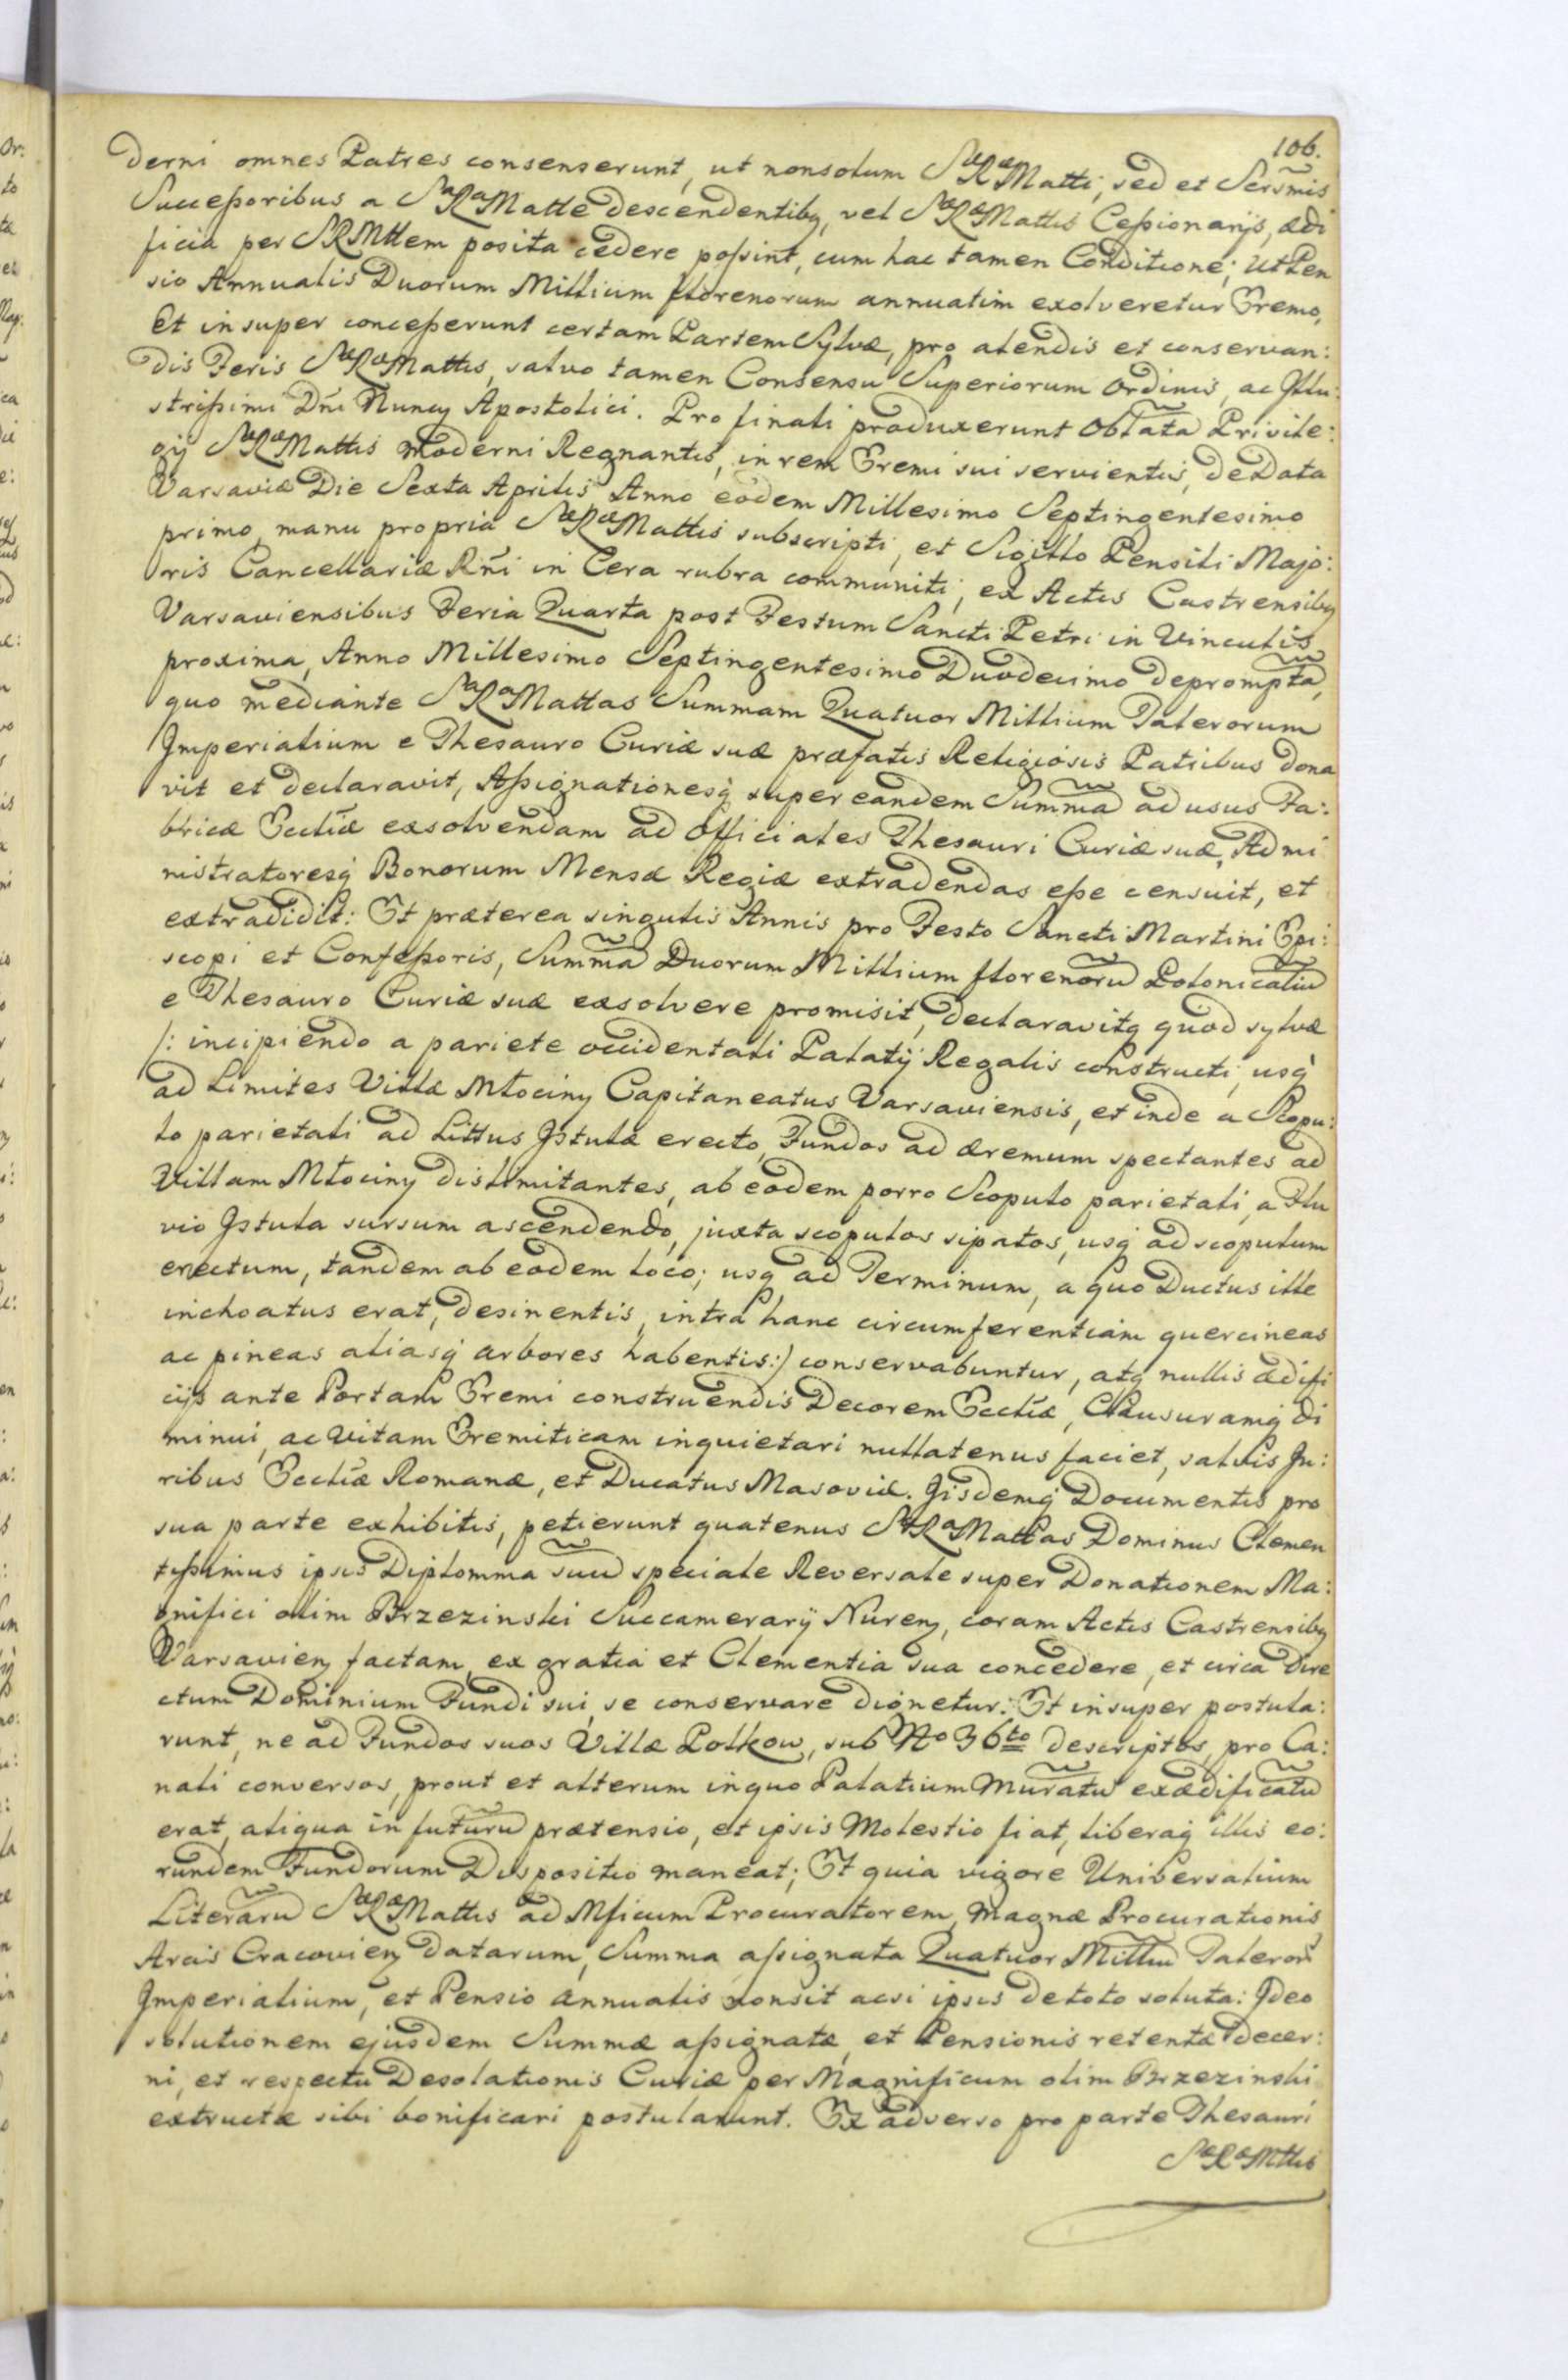 106.
derni omnes Patres consenserunt, ut nonsolum SæRæMatti, sed et Sersmis
Succeßoribus a SaRaMatte descendentibq, vel SæRæMattis Ceßionarijs, ædi
ficia per SRMttem posita cedere poßint, cum hac tamen Conditione; Ut Pen
sio Annualis Duorum Millium florenorum annuatim exolveretur Eremo,
Et insuper conceßerunt certam Partem Sylvæ, pro alendis et conservan:
dis Feris SæRæMattis, salvo tamen Consensu Superiorum Ordinis, ac Illu:
strißimi Dñi Nuncÿ Apostolici. Pro finali produxerunt Oblata Privile:
gÿ SæRæMattis moderni Regnantis, in rem Eremi sui servientis, de Data
Varsaviæ Die Sexta Aprilis Anno eodem Millesimo Septingentesimo
primo, manu propria SæRæMattis subscripti, et Sigillo Pensili Majo:
ris Cancellariæ Rñi in Cera rubra communiti, ex Actis Castrensibq
Varsaviensibus Feria Quarta post Festum Sancti Petri in Vinculis
proxima, Anno Millesimo Septingentesimo Duodecimo deprompta,
quo mediante SaRaMattas Summam Quatuor Millium Talerorum
Imperialium e Thesauro Curiæ suæ præfatis Religiosis Patribus dona
vit et declaravit, Aßignationesq super eandem Summa ad usus Fa:
bricæ Eccliæ exsolvendam ad Officiales Thesauri Curiæ suæ, Admi
nistratoresq Bonorum Mensæ Regiæ extradendas eße censuit, et
extradidit: Et præterea singulis Annis pro Festo Sancti Martini Epi:
scopi et Confeßoris, Summa Duorum Millium florenoru Polonicaliu
e Thesauro Curiæ suæ exsolvere promisit, declaravitq quod sylvæ
/: incipiendo a pariete occidentali Palatÿ Regalis constructi, usq
ad Limites Villæ Młociny Capitaneatus Varsaviensis, et inde a Scopu:
lo parietali ad Littus Istulæ erecto, Fundos ad æremum spectantes ad
Villam Młociny dislimitantes, ab eodem porro Scopulo parietali, a Flu
vio Istula sursum ascendendo, juxta scopulos sipatos, usq ad scopulum
erectum, tandem ab eodem loco; usq ad Terminum, a quo Ductus ille
inchoatus erat, desinentis, intra hanc circumferentiam quercineas
ac pineas aliasq arbores habentis:) conservabuntur, atq nullis ædifi
cijs ante Portam Eremi construendis Decorem Eccliæ, Clausuramq di
minui, ac Vitam Eremiticam inquietari nullatenus faciet, salvis Ju:
ribus Eccliæ Romanæ, et Ducatus Masoviæ. Iisdemq Documentis pro
sua parte exhibitis, petierunt quatenus SaRaMattas Dominus Clemen
tißimus ipsis Diplomma suu speciale Reversale super Donationem Ma:
gnifici olim Brzezinski Succamerarÿ Nureñ, coram Actis Castrensibq
Varsavieñ factam, ex gratia et Clementia sua concedere, et circa Dire
ctum Dominium Fundi sui se conservare dignetur: Et insuper postula:
runt, ne ad Fundos suos Villæ Polkow, sub No 36to descriptos, pro Ca:
nali conversos, prout et alterum in quo Palatium Muratu exædificatu
erat, aliqua in futuru prætensio, et ipsis Molestio fiat, liberaq illis eo:
rundem Fundorum Dispositio maneat; Et quia vigore Universalium
Literaru SæRæMattis ad Mficum Procuratorem Magnæ Procurationis
Arcis Cracovieñ datarum, Summa aßignata Quatuor Milliu Taleror
Imperialium, et Pensio annualis non sit acsi ipsis detoto soluta: Ideo
solutionem ejusdem Summæ aßignatæ, et Pensionis retentæ decer:
ni, et respectu Desolationis Curiæ per Magnificum olim Brzezinski
extructæ sibi bonificari postularunt. Ex adverso pro parte Thesauri
SæRæMttis